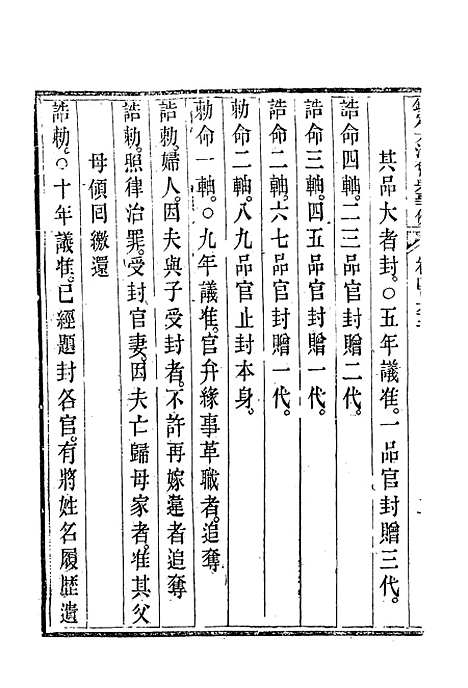 其品大者封。○五年議准。一品官封贈三代。
誥命四軸。二三品官封贈二代。
誥命三軸。四五品官封贈一代。
誥命二軸。六七品官封贈一代。
勅命二軸。八九品官止封本身。
勅命一軸。○九年議准。官弁緣事革職者。追奪
誥勅。婦人因夫與子受封者。不許再嫁。違者追奪
誥勅。照律治罪。受封官妻。因夫亡歸母家者。准其父
母領回繳還
誥勅。○十年議准。已經題封各官。有將姓名履歷遺